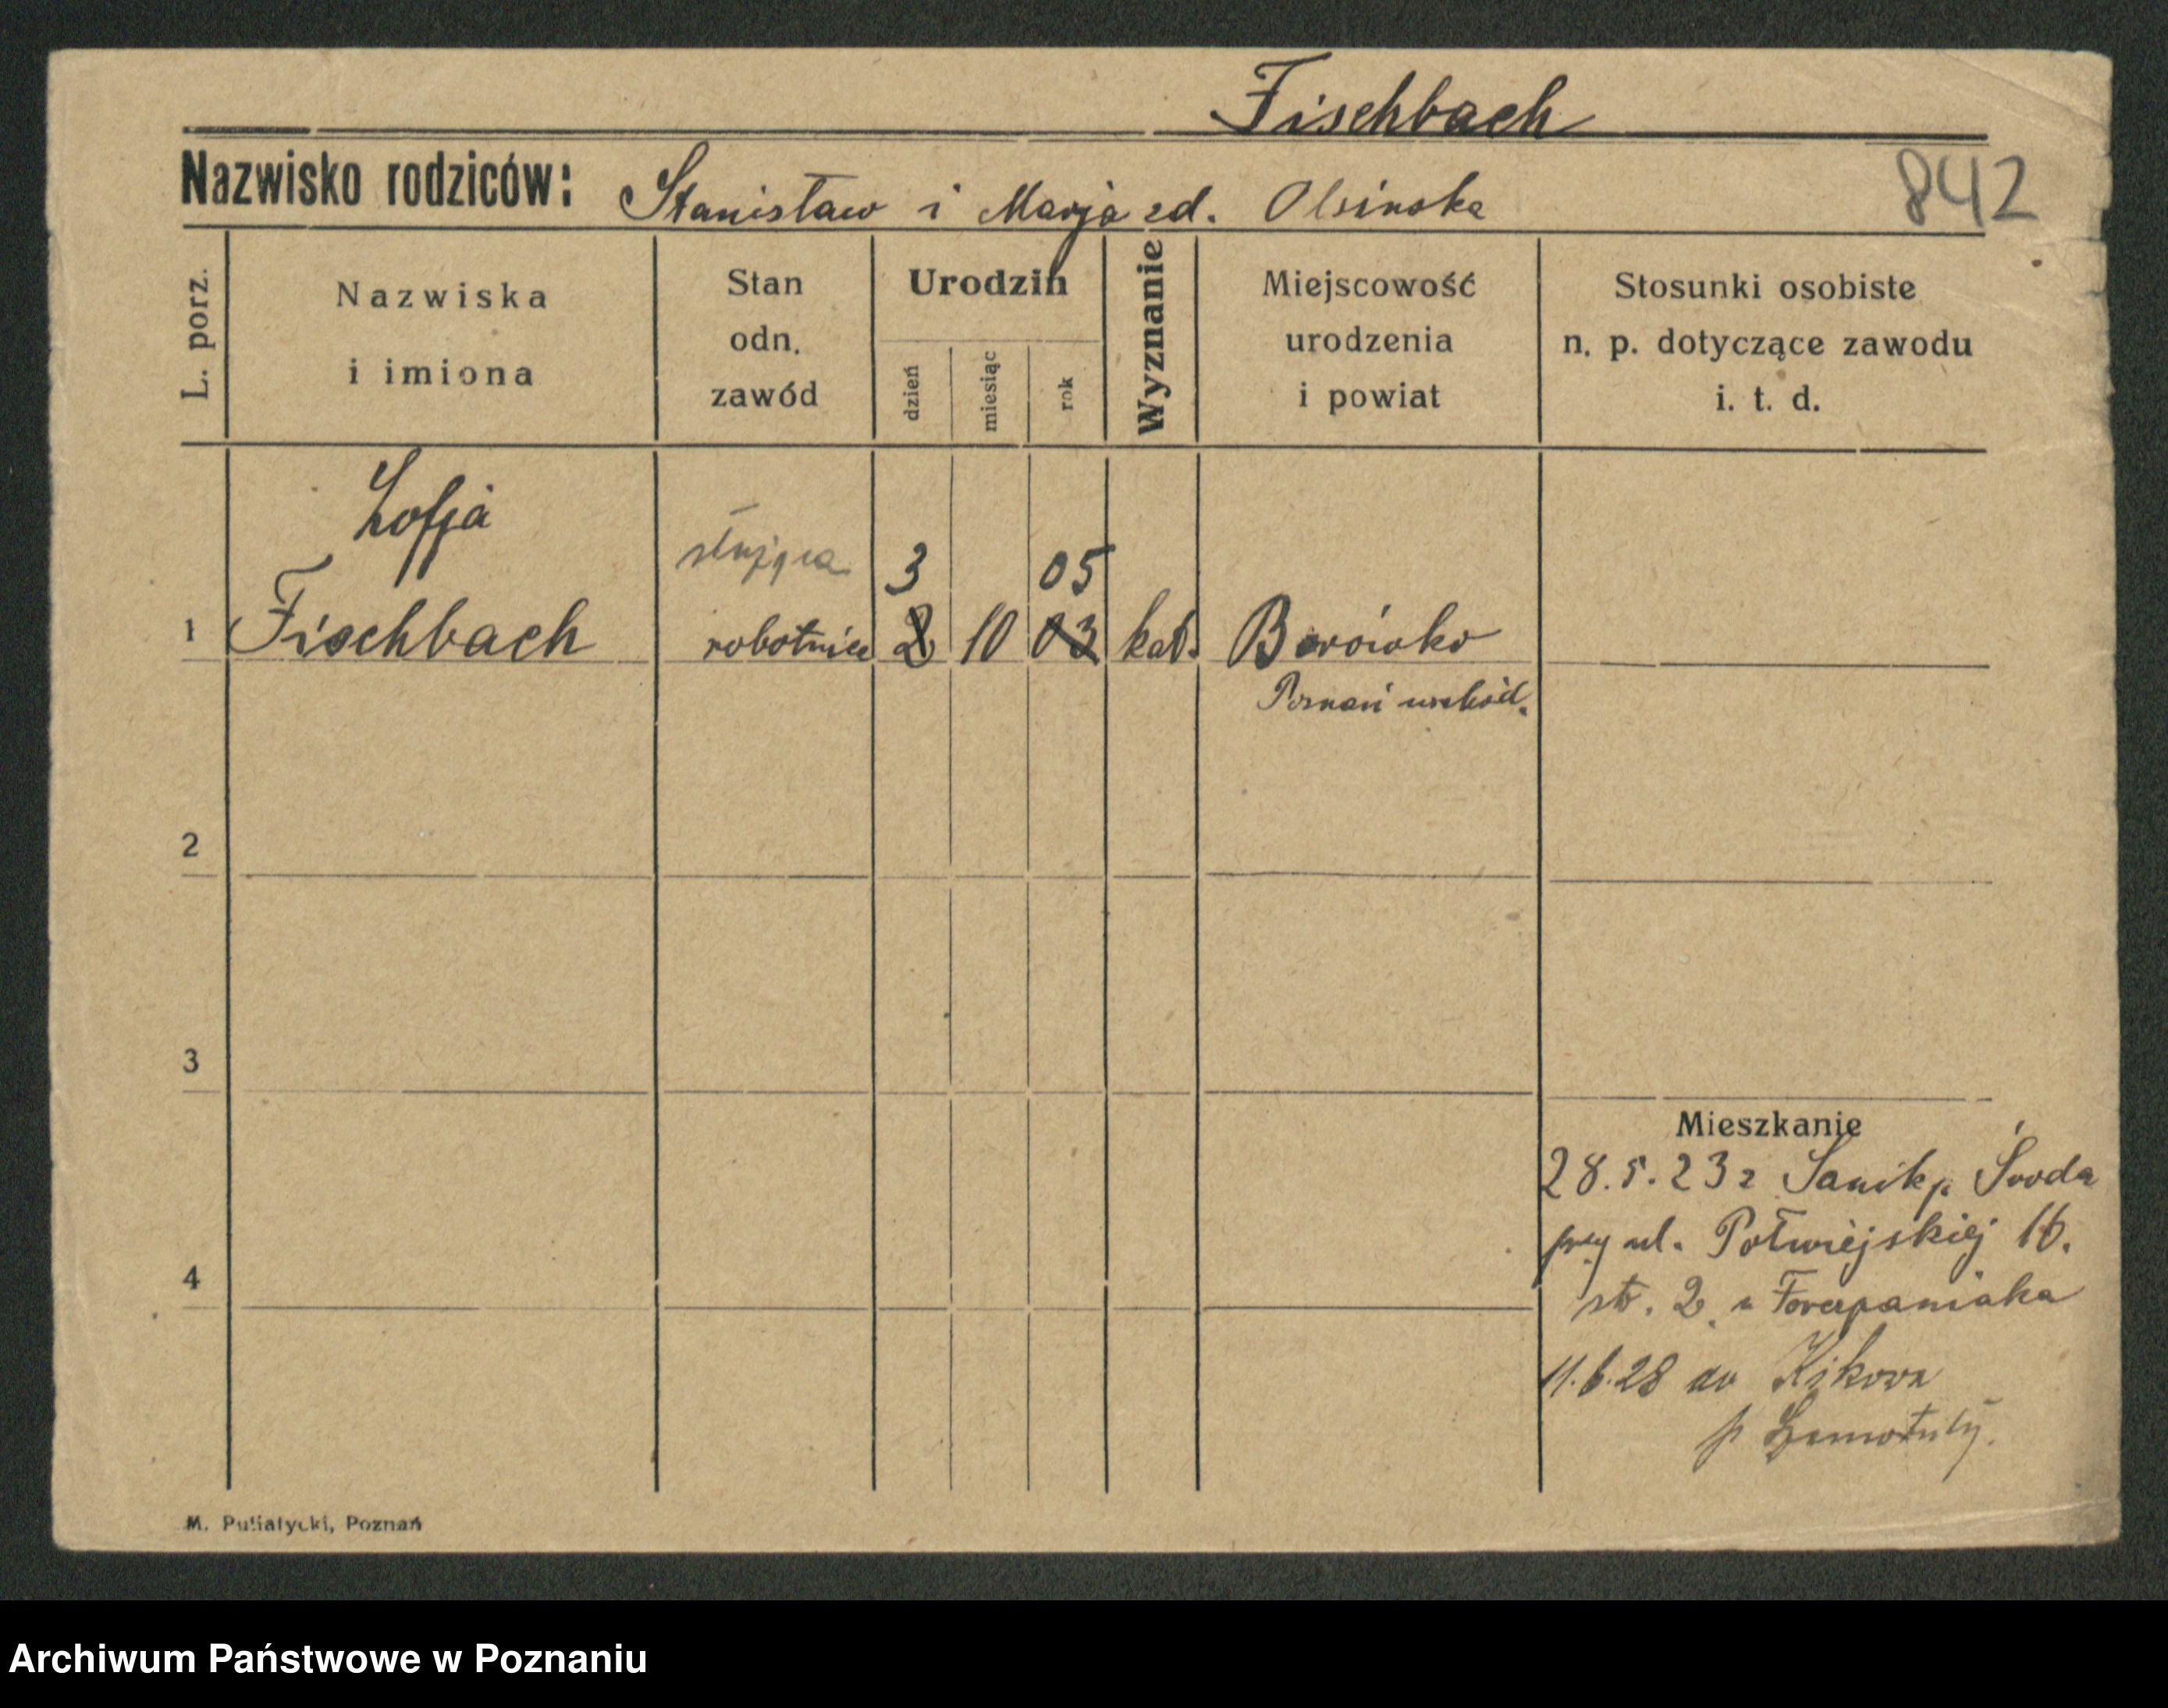 Fischbach
Nazwisko rodziców: Stanisław i Marja zd. Olsinska
842
L. porz.
Nazwiska
i imiona
Stan
odn.
zawód
Urodzin
dzień
miesiąc
rok
Wyznanie
Miejscowość
urodzenia
i powiat
Stosunki osobiste
n. p. dotyczące zawodu
i. t. d.
Zofja
służąca 3 05
1 Fischbach robotnica 2 10 03 kat. Borówko
Poznań wschód.
2
3
Mieszkanie
28.5.23 z Sanik p. Środa
przy ul. Półwiejskiej 16.
4
str. 2 u
11.6.28 do Kikowa
p Szamotuły.
M. Putiatycki, Poznań
Archiwum Państwowe w Poznaniu